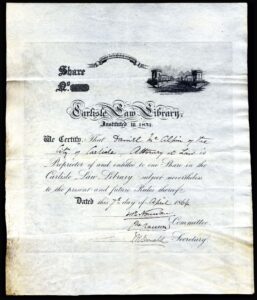 Share
No.
Carlisle Law Library,
Instituted in 1831.
We Certify, That Daniell Mc Alpin of the
City of Carlisle Attorney at Law is
Proprietor of and entitled to one Share in the
Carlisle Law Library subject nevertheless
to the present and future Rules thereof.
Dated this 7th day of April 1864
Committee.
Secretary